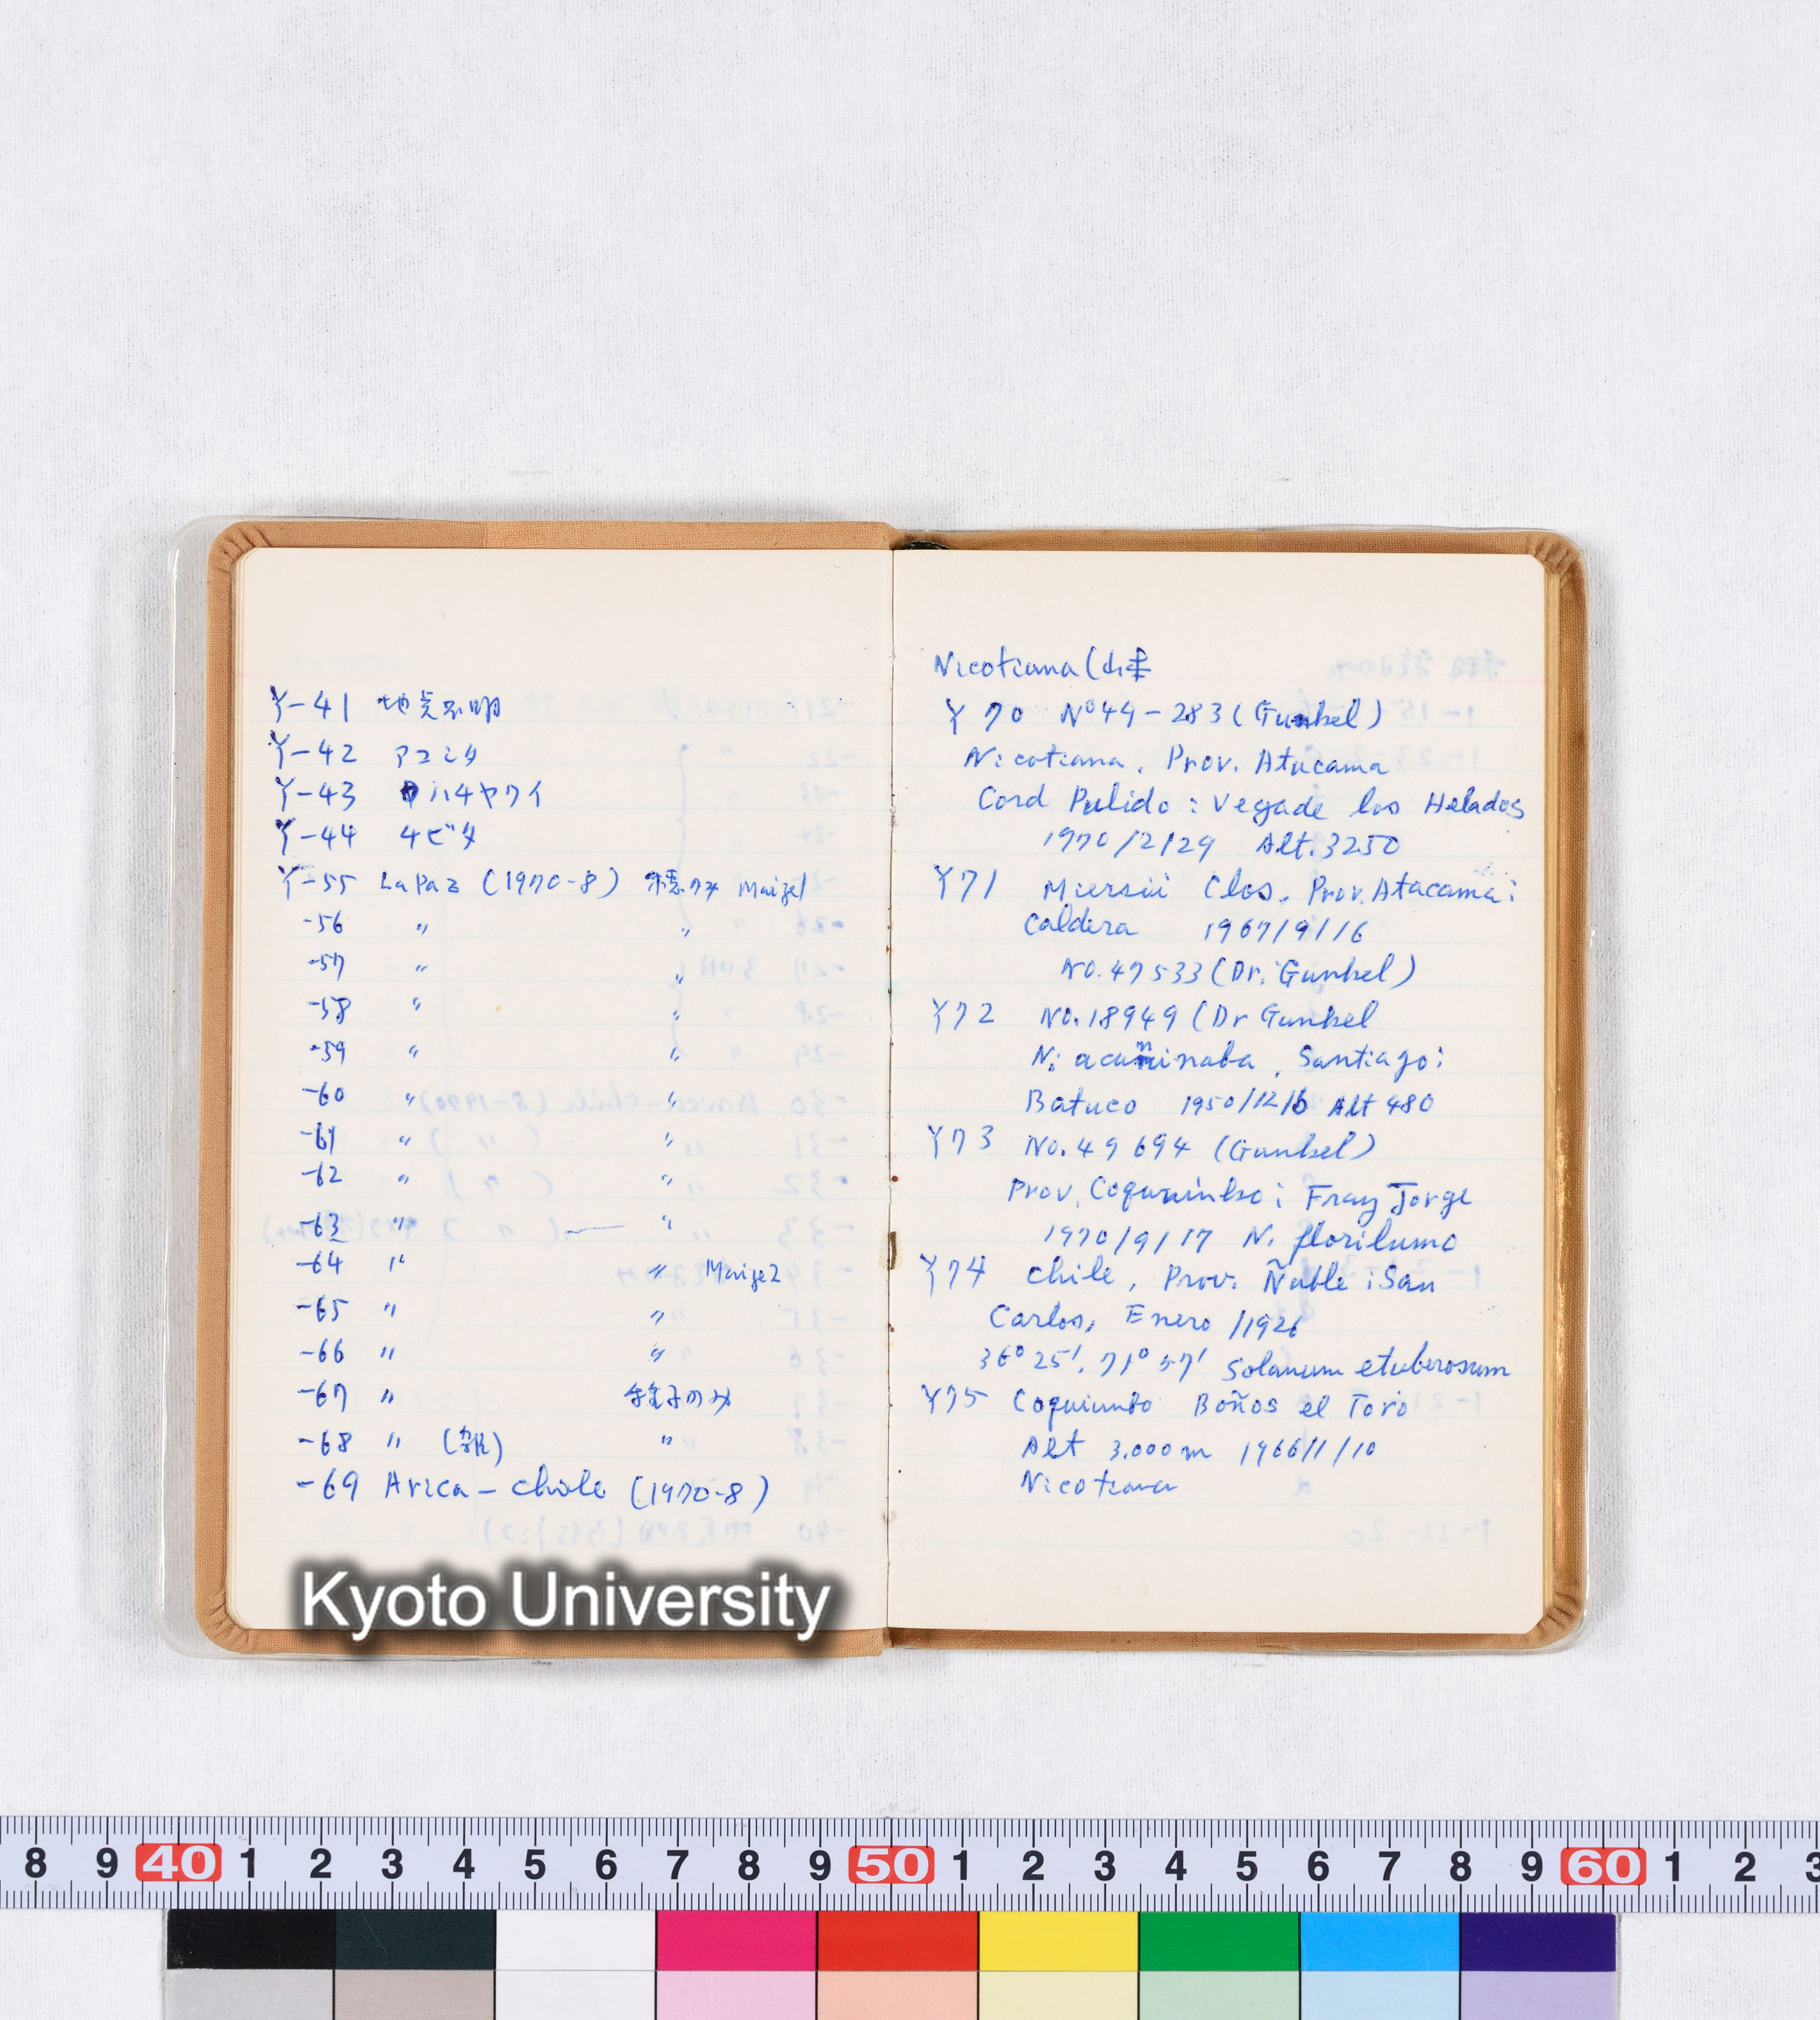 Y-41 地点不明
Y-42 アコミタ
Y-43 ハ4ヤワイ
Y-44 4ビタ
Y-55 LaPaz (1970-8) 穂のみ Maize1
-56 〃 〃
-57 〃 〃
-58 〃 〃
-59 〃 〃
-60 〃 〃
-61 〃 〃
-62 〃 〃
-63 〃 〃
-64 〃 〃 Maize2
-65 〃 〃
-66 〃 〃
-67 〃 種子のみ
-68 〃 〃
-69 Arica - chile (1970-8)
Nicotiana (
Y70 Nº44-283 (Gunkel)
Nicotiana. Prov. Atacama
Cord Pulido : Vega de los Helados
1970/2/29 Alt. 3250
Y71 Miersii Clos. Prov. Atacama:
Caldera 1967/9/16
No. 47533 (Dr. Gunkel)
Y72 No. 18949 (Dr Gunkel
N. acuminaba, Santiago:
Batuco 1950/12/6 Alt 480
Y73 No. 49694 (Gunkel)
Prov. Coquimbo : Fray Jorge
1970/9/17 N.
Y74 Chile, Prov. Ñuble : San
Carlos, Enero /1926
36° 25'. 71° 57' Solanum etuberosum
Y75 Coquimbo Boños el Toro
Alt 3.000 m 1966/1/10
Nicotiana
Kyoto University
8 9 40 1 2 3 4 5 6 7 8 9 50 1 2 3 4 5 6 7 8 9 60 1 2 3